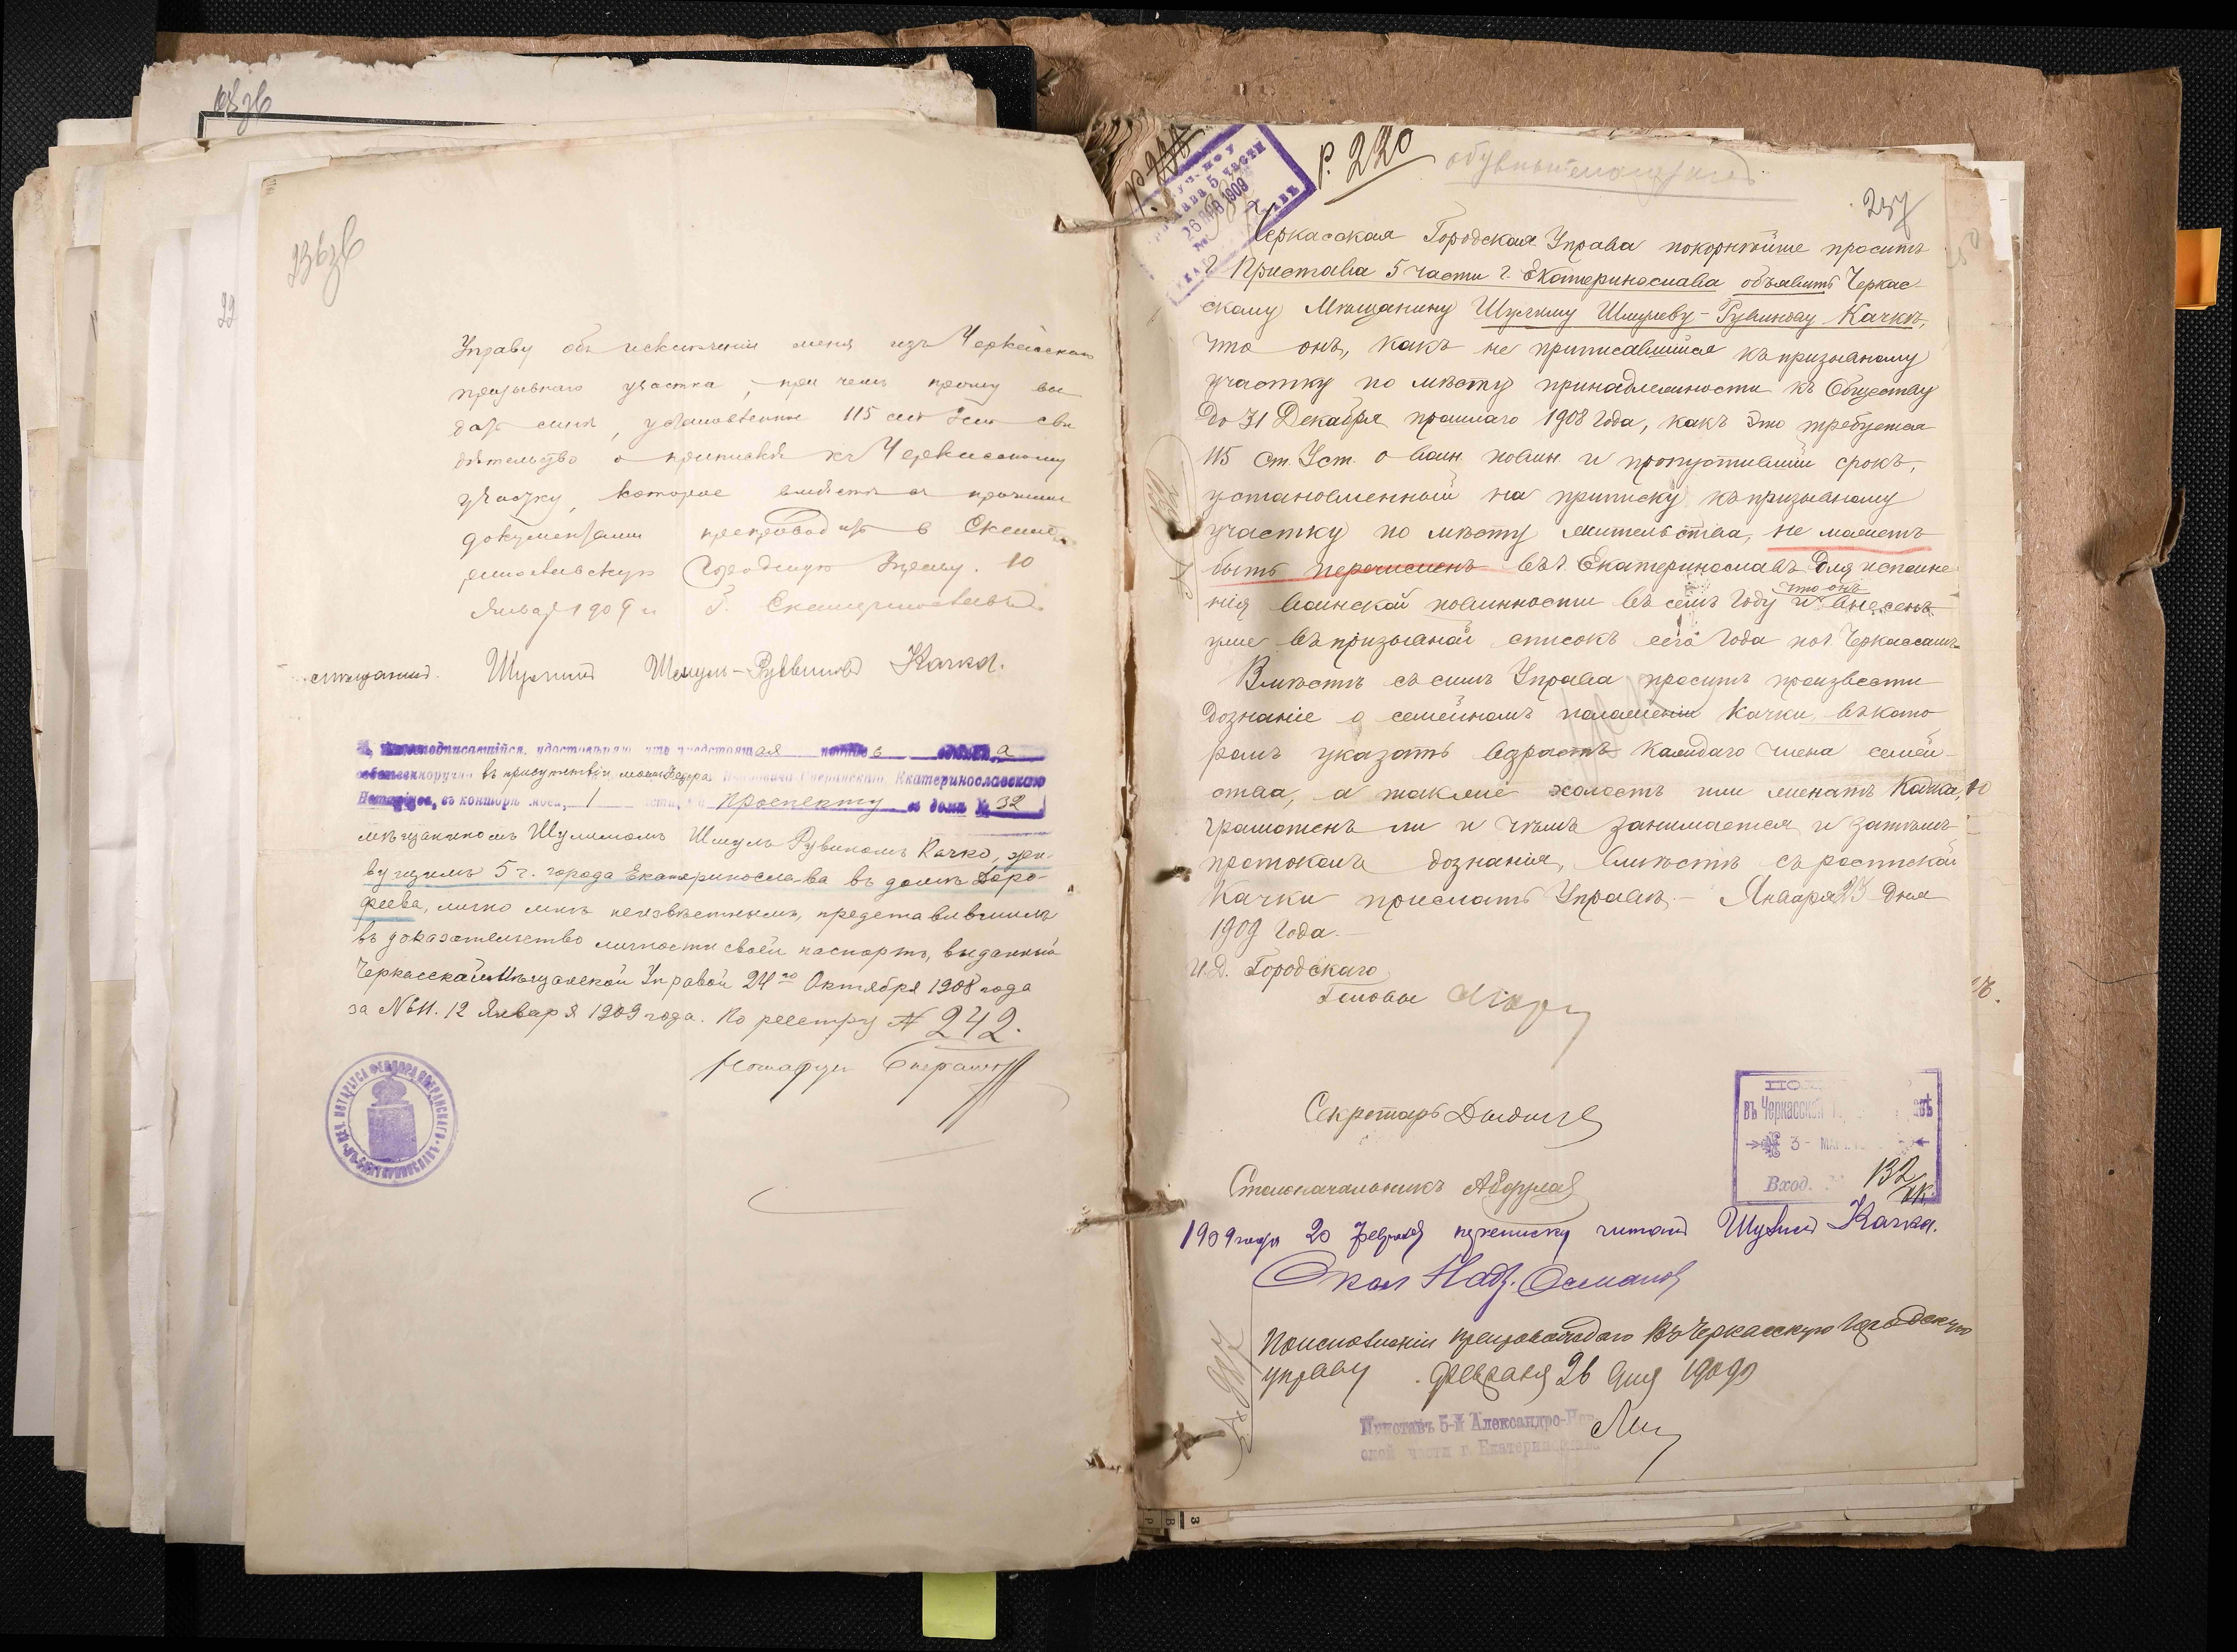 236 об
Управу об исключении меня изъ Черкасскаго
призывнаго участка, при чемъ прошу вы
дать мнѣ, установленное 115 ст Уст сви
дѣтельство о припискѣ къ Черкасскому
участку, которое вмѣстѣ съ прочими
документами препроводить в Екате
ринославскую Городскую Управу. 10
Января 1909 г. Г. Екатеринославъ.
мѣщанинъ Шулимъ Шмуль-Рувиновъ Качка.
подписавшійся, удостовѣряю, что предстоящая подпись
собственноручно въ присутствіи моемъ, Федора Сперанскаго, Екатеринославскаго
Нотаріуса, въ конторѣ моей, 1 части, по проспекту въ домѣ № 32
мѣщаниномъ Шулимомъ Шмуль Рувиномъ Качко, жи-
вущимъ 5 ч. города Екатеринослава въ домѣ Доро-
феева, лично мнѣ неизвѣстнымъ, представившимъ
въ доказательство личности своей паспортъ, выданный
Черкасской Мѣщанской Управой 24го Октября 1908 года
за № 11. 12 Января 1909 года. По реестру № 242.
Нотаріусъ Сперанскій
Р. 220
237
26 ЯНВ 1909
Черкасская Городская Управа покорнѣйше проситъ
г. Пристава 5 части г. Екатеринослава объявить Черкас
скому Мѣщанину Шулиму Шмулеву-Рувинову Качкѣ,
что онъ, какъ не приписавшійся къ призывному
участку по мѣсту принадлежности къ Обществу
до 31 Декабря прошлаго 1908 года, какъ это требуется
115 ст. Уст. о воин. повин. и пропустившій срокъ,
установленный на приписку къ призывному
участку по мѣсту жительства, не можетъ
быть перечисленъ въ г. Екатеринославъ для исполне
нія воинской повинности въ семъ году и что онъ внесенъ
уже въ призывной списокъ сего года по г. Черкассамъ.
Вмѣстѣ съ симъ Управа проситъ произвести
дознаніе о семейномъ положеніи Качки, въ кото
ромъ указать возрастъ каждаго члена семей-
ства, а также холостъ или женатъ Качка,
грамотенъ ли и чѣмъ занимается и затѣмъ
протоколъ дознанія, вмѣстѣ съ роспиской
Качки прислать Управѣ. – Января 23 дня
1909 года. –
И.д. Городскаго
Головы
Секретарь
Столоначальникъ
въ Черкасской
3 - МАР
Вход. 132
1909 года 20 февраля переписку читалъ Шулимъ Качка.
Окол Надз. Османов
По исполненіи препровождаю въ Черкасскую Городскую
управу февраля 26 дня 1909
Приставъ 5-й Александро-Нев
ской части г. Екатеринослава